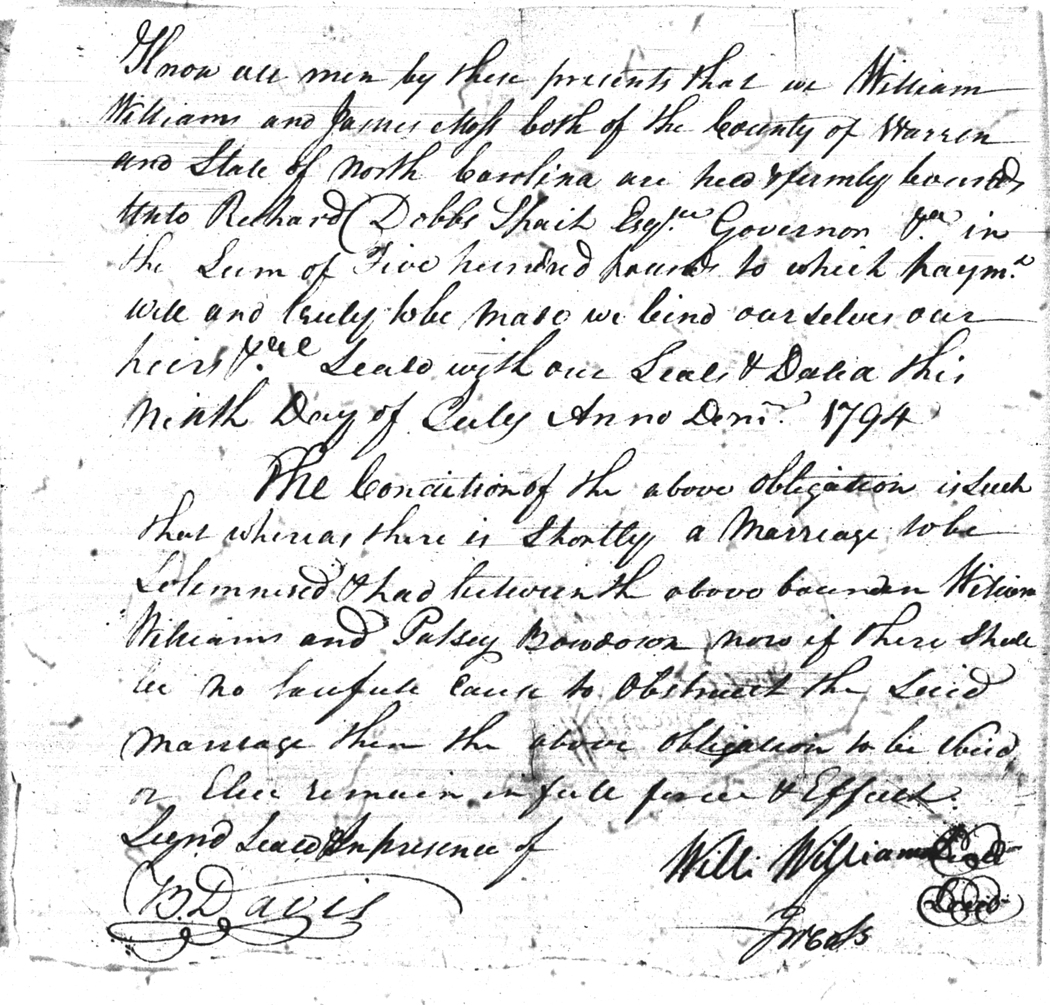 Know all men by these presents that we William
Williams and James Moss both of the County of Warren
and State of North Carolina are held & firmly bound
unto Richard Dobbs Spaith Esqr. Governor &ca in
the Sum of Five hundred pounds to which paymt.
well and truly to be made we bind ourselves our
heirs &c. Seald with our Seals & Dated this
Ninth Day of July Anno Domi. 1794
The Condition of the above obligation is Such
that whereas there is Shortly a Marriage to be
Solemnised & had between the above bounden William
Williams and Patsey Bowdown now if there Shall
be no lawfull Cause to Obstruct the Said
Marriage then the above obligation to be Void
or Else remain in full force & Effect.
Signd Seald In presence of
Willi Williams Seal
B. Davis
Seal